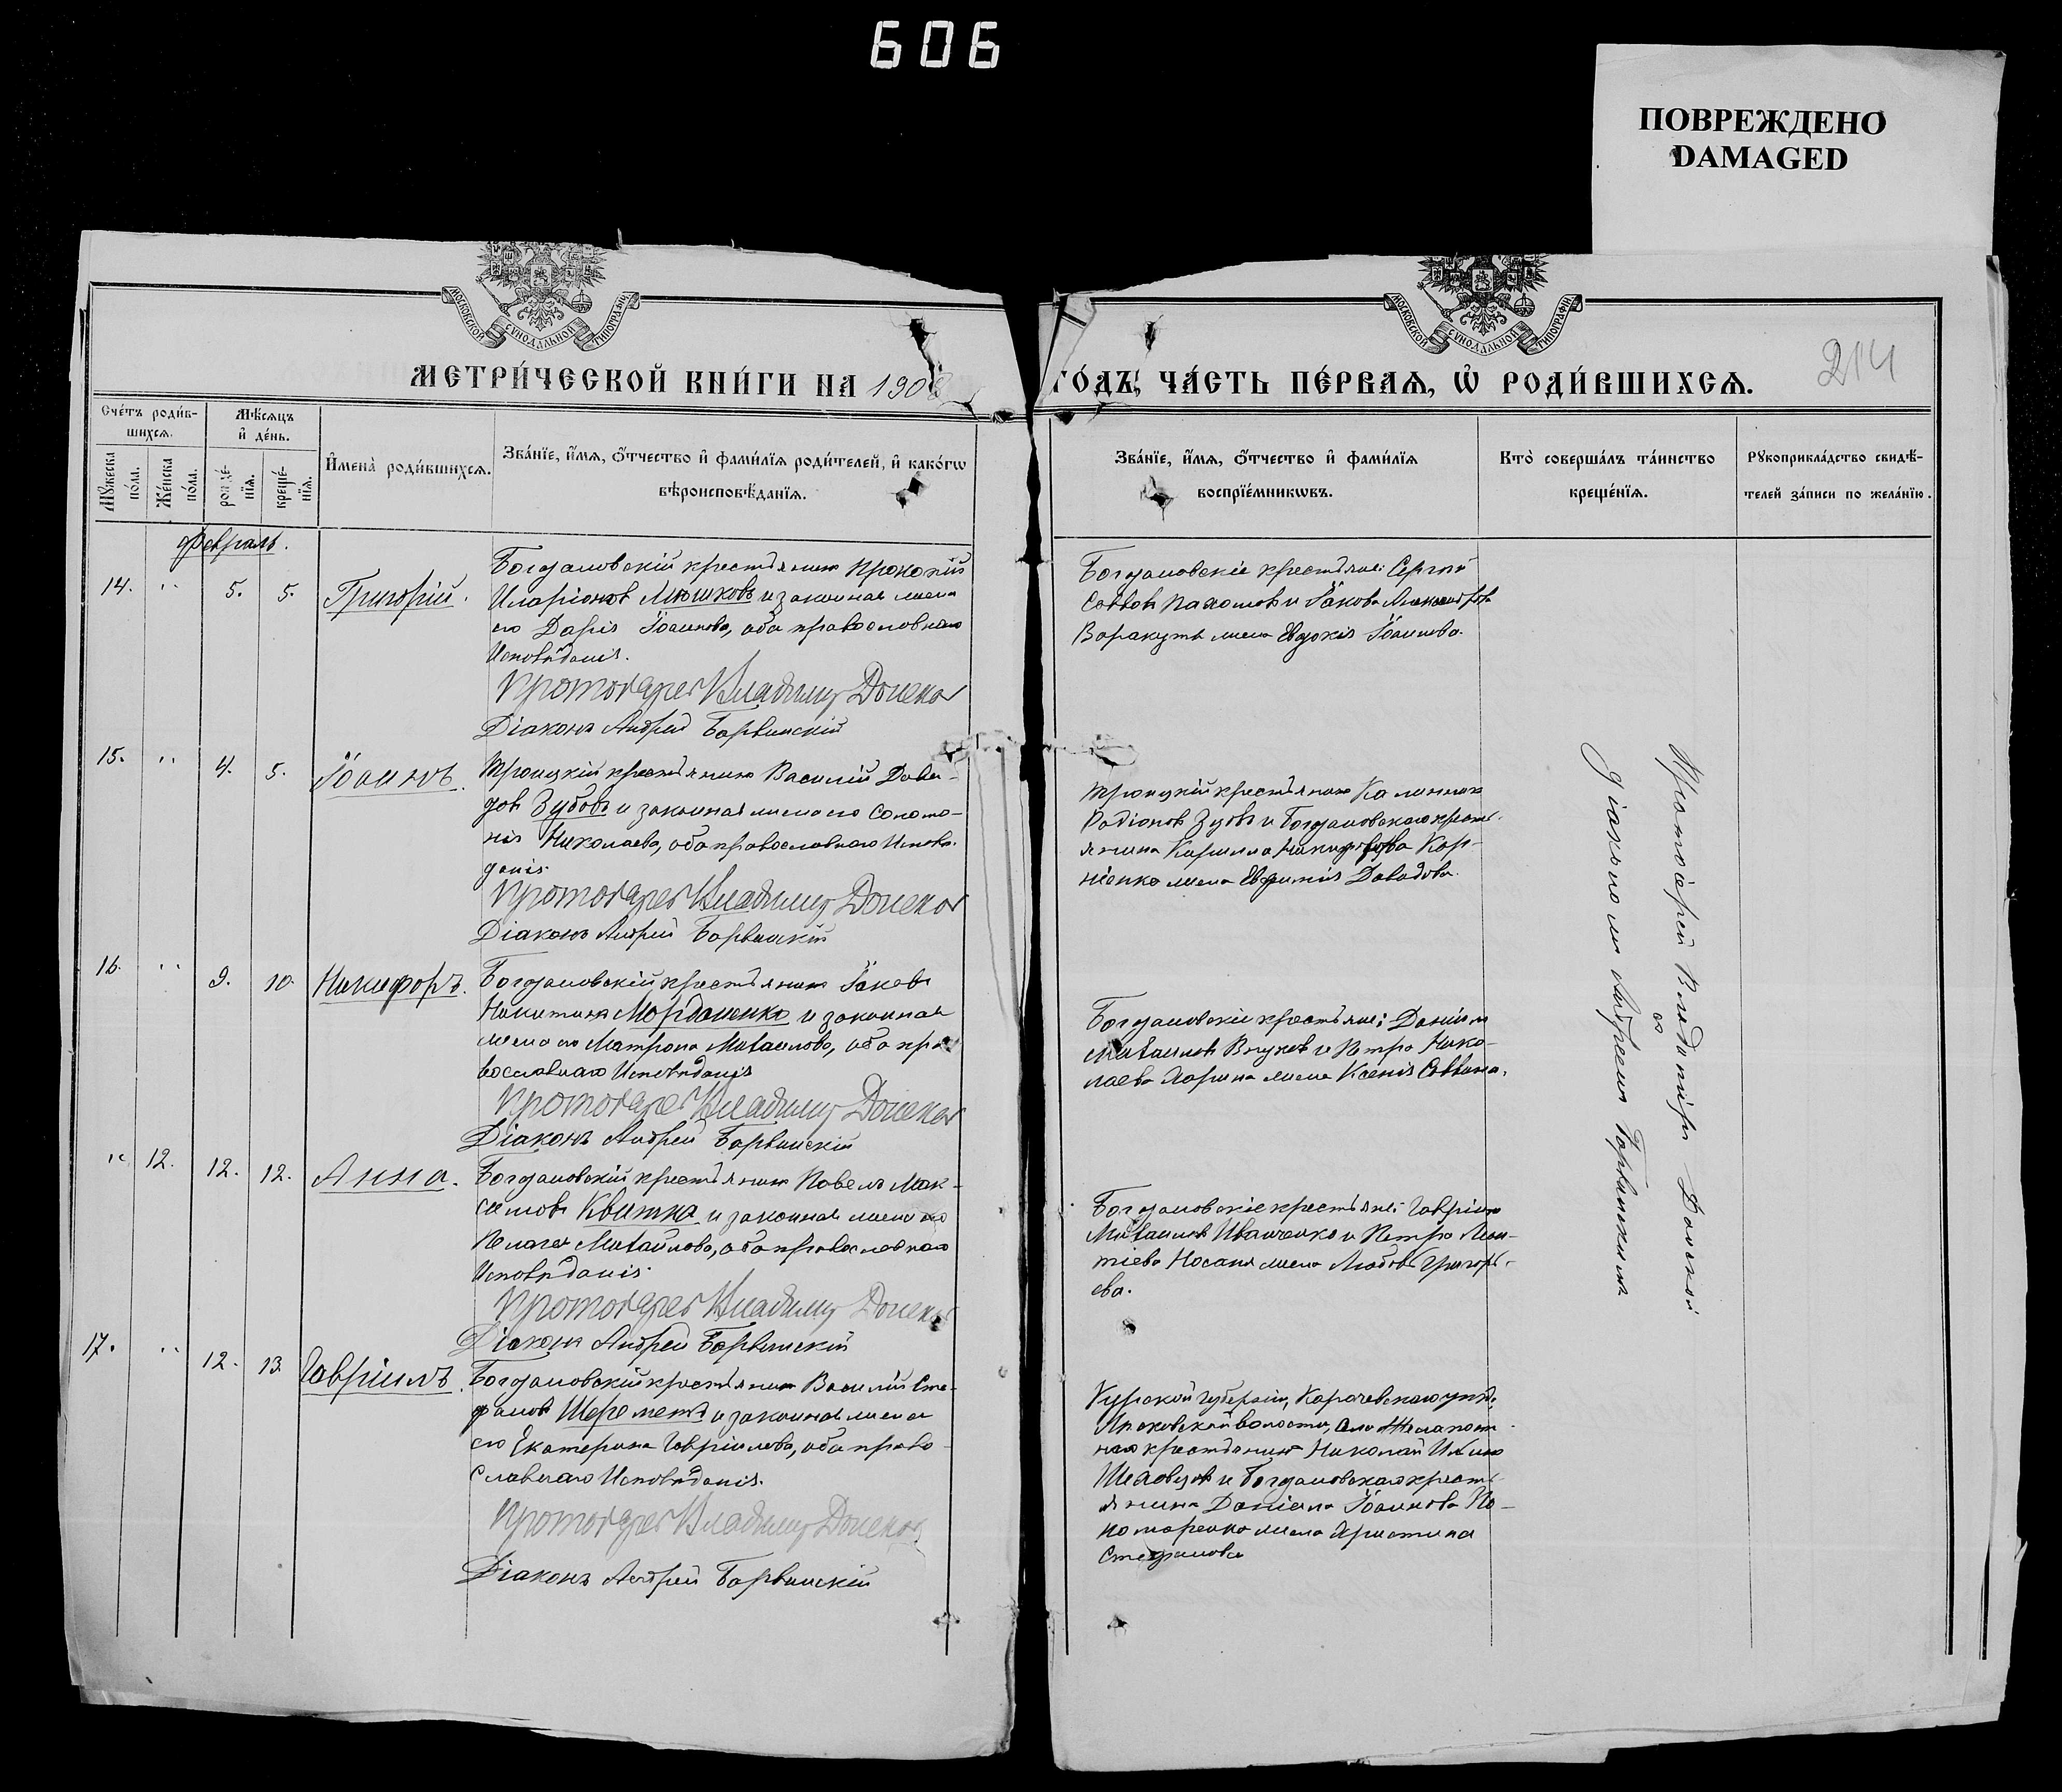 606
ПОВРЕЖДЕНО
DAMAGED
МОСКОВСКОЙ СѴНОДАЛЬНОЙ ТИПОГРАФІИ
МОСКОВСКОЙ СѴНОДАЛЬНОЙ ТИПОГРАФІИ
МЕТРИ́ЧЕСКОЙ КНИ́ГИ НА 1908
ГО́ДЪ, ЧА́СТЬ ПЕ́РВАѦ, Ѡ҆ РОДИ́ВШИХСѦ.
214
Сче́тъ роди́в-
шихсѧ.
Мѣ́сѧцъ
и҆ де́нь.
Мꙋ́жеска по́ла.
Же́нска по́ла.
рожде́-нїѧ.
креще́-нїѧ.
И҆мена̀ роди́вшихсѧ.
Зва́нїе, и҆́мѧ, ѻ҆́тчество и҆ фами́лїѧ роди́телей, и҆ како́гѡ
вѣроисповѣ́данїѧ.
Зва́нїе, и҆́мѧ, ѻ҆́тчество и҆ фами́лїѧ
воспрїе́мникѡвъ.
Кто̀ соверша́лъ та́инство
креще́нїѧ.
Рꙋкоприкла́дство свидѣ́-
телей за́писи по жела́нїю.
Февраль.
14. " 5. 5. Григорій.
Богдановскій крестьянинъ Прокопій
Иларіоновъ Мюшковъ и законная жена
его Дарія Іоаннова, оба православнаго
Исповѣданія.
Протоіерей Владимир Донской
Діаконъ Андрей Барвинскій
Богдановскіе крестьяне: Сергій
Саввовъ Пахомовъ и Іакова Александрова
Варакутъ жена Евдокія Іоаннова.
15. " 4. 5. Іоаннъ.
Троицкій крестьянинъ Василій Дави-
довъ Зубовъ и законная жена его Соломо-
нія Николаева, оба православнаго Исповѣ-
данія.
Протоіерей Владимир Донской
Діаконъ Андрей Барвинскій
Троицкій крестьянинъ Калинникъ
Родіоновъ Зубовъ и Богдановскаго кресть-
янина Кирилла Никифорова Кор-
ніенко жена Евфимія Давидова.
16. " 9. 10. Никифоръ.
Богдановскій крестьянинъ Іаковъ
Никитинъ Мордоненко и законная
жена его Матрона Михаилова, оба пра-
вославнаго Исповѣданія
Протоіерей Владимир Донской
Діаконъ Андрей Барвинскій
Богдановскіе крестьяне: Даніилъ
Михаиловъ Внуковъ и Петра Нико-
лаева Ларина жена Ксенія Саввина.
" 12. 12. 12. Анна.
Богдановскій крестьянинъ Павелъ Мак-
симовъ Квитка и законная жена его
Пелагея Михайлова, оба православнаго
Исповѣданія.
Протоіерей Владимир Донской
Діаконъ Андрей Барвинскій
Богдановскіе крестьяне: Гавріилъ
Михаиловъ Иващенко и Петра Леон-
тіева Носаня жена Любовь Григорь-
ева.
17. " 12. 13. Гавріилъ.
Богдановскій крестьянинъ Василій Сте-
фановъ Шереметъ и законная жена
его Екатерина Гавріилова, оба право-
славнаго Исповѣданія.
Протоіерей Владимир Донской
Діаконъ Андрей Барвинскій
Курской губерніи, уѣзда,
волости,
крестьянинъ Николай
и Богдановскаго кресть-
янина Даніила Іоаннова По-
номаренко жена Христина
Стефанова
Протоіерей Владиміръ Донской
съ
діакономъ Андреемъ Барвинскимъ